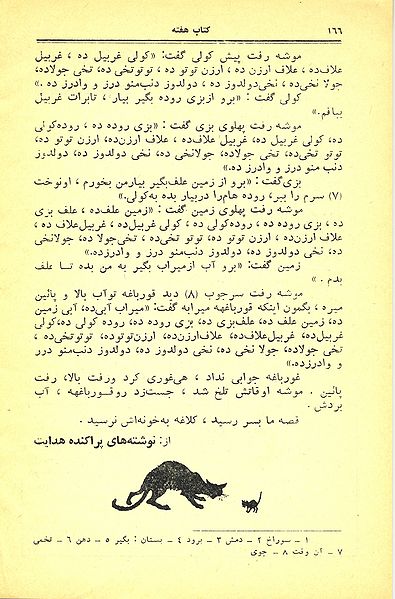 ۱۶۶
کتاب هفته
موشه رفت پیش کولی گفت: «کولی غربیل ده ، غربیل
علاف‌ده ، علاف ارزن ده ، ارزن توتو ده ، توتوتخی ده، تخی جولاده،
جولا نخی‌ده ، نخی‌دولدوز ده ، دولدوز دنب‌منو درز و وادرز ده.»
کولی گفت : «برو ازبزی روده بگیر بیار ، تابرات غربیل
ببافم.»
موشه رفت پهلوی بزی گفت : «بزی روده ده ، روده‌کولی
ده، کولی غربیل ده، غربیل علاف‌ده ، علاف ارزن‌ده، ارزن توتو ده،
توتو تخی‌ده، تخی جولاده، جولانخی ده، نخی دولدوز ده، دولدوز
دنب منو درز و وادرز ده.»
بزی‌گفت : «برو از زمین علف‌بگیر بیارمن بخورم ، اونوخت
(۷) سرم را ببر، روده هام‌را دربیار بده به‌کولی.»
موشه رفت پهلوی زمین گفت : «زمین علف‌ده ، علف بزی
ده ، بزی روده ده ، روده‌کولی ده ، کولی غربیل‌ده ، غربیل‌علاف ده ،
علاف ارزن‌ده ، ارزن توتو ده، توتو تخی ده، تخی‌جولا ده، جولانخی
ده، نخی دولدوز ده، دولدوز دنب‌منو درز و وادرزده.»
زمین گفت: «برو آب ازمیراب بگیر به من بده تـا علف
بدم . »
موشه رفت سرجوب (۸) دید قورباغه توآب بالا و پائین
میره ، بگمون اینکه قورباغهه میرابه گفت: «میراب آبی‌ده، آبی زمین
ده، زمین علف ده، علف‌بزی ده، بزی روده ده، روده کولی ده، کولی
غربیل‌ده، غربیل‌علاف‌ده، علاف‌ارزن‌ده، ارزن‌توتوده، توتوتخی‌ده ،
تخی جولاده، جولا نخی ده، نخی دولدوز ده، دولدوز دنب‌منو درز
و وادرزده.»
غورباغه جوابی نداد ، هی‌غوری کرد ورفت بالا، رفت
پائین . موشه اوقاتش تلخ شد ، جست‌زد روقورباغهه ، آب
بردش .
قصه ما بسر رسید ، کلاغه به‌خونه‌اش نرسید .
از: نوشته‌های پراکنده هدایت
۱ – سوراخ ۲ – دمش ۳ – برود ۴ – بستان : بگیر ۵ – دهن ۶ – تخمی
۷ – آن وقت ۸ – جوی